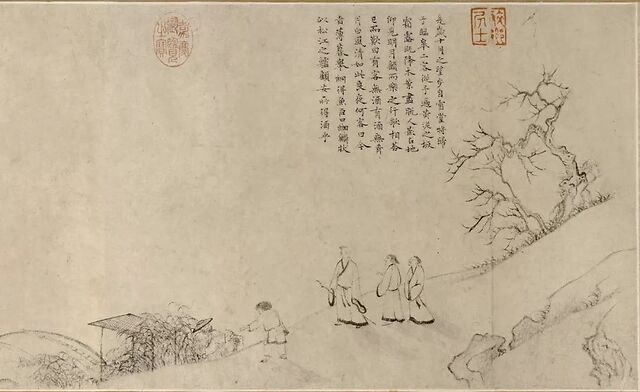 是歲十月之望步自雪堂將歸
于臨皋二客從予過黃泥之坂
霜露既降木葉盡脫人影在地
仰見明月顧而樂之行歌相答
已而歎曰有客無酒有酒無肴
月白風清如此良夜何客曰今
者薄暮舉網得魚巨口細鱗狀
似松江之鱸顧安所得酒乎